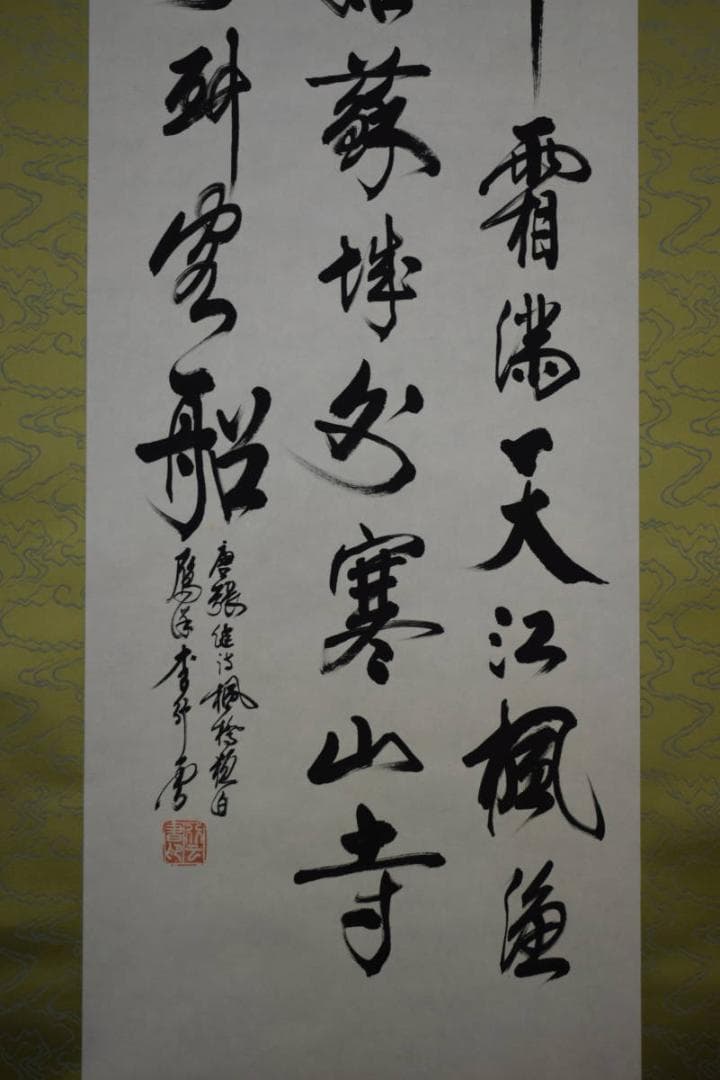 霜满天江楓漁
蘇城外寒山寺
到客船
唐張继诗楓橋夜泊